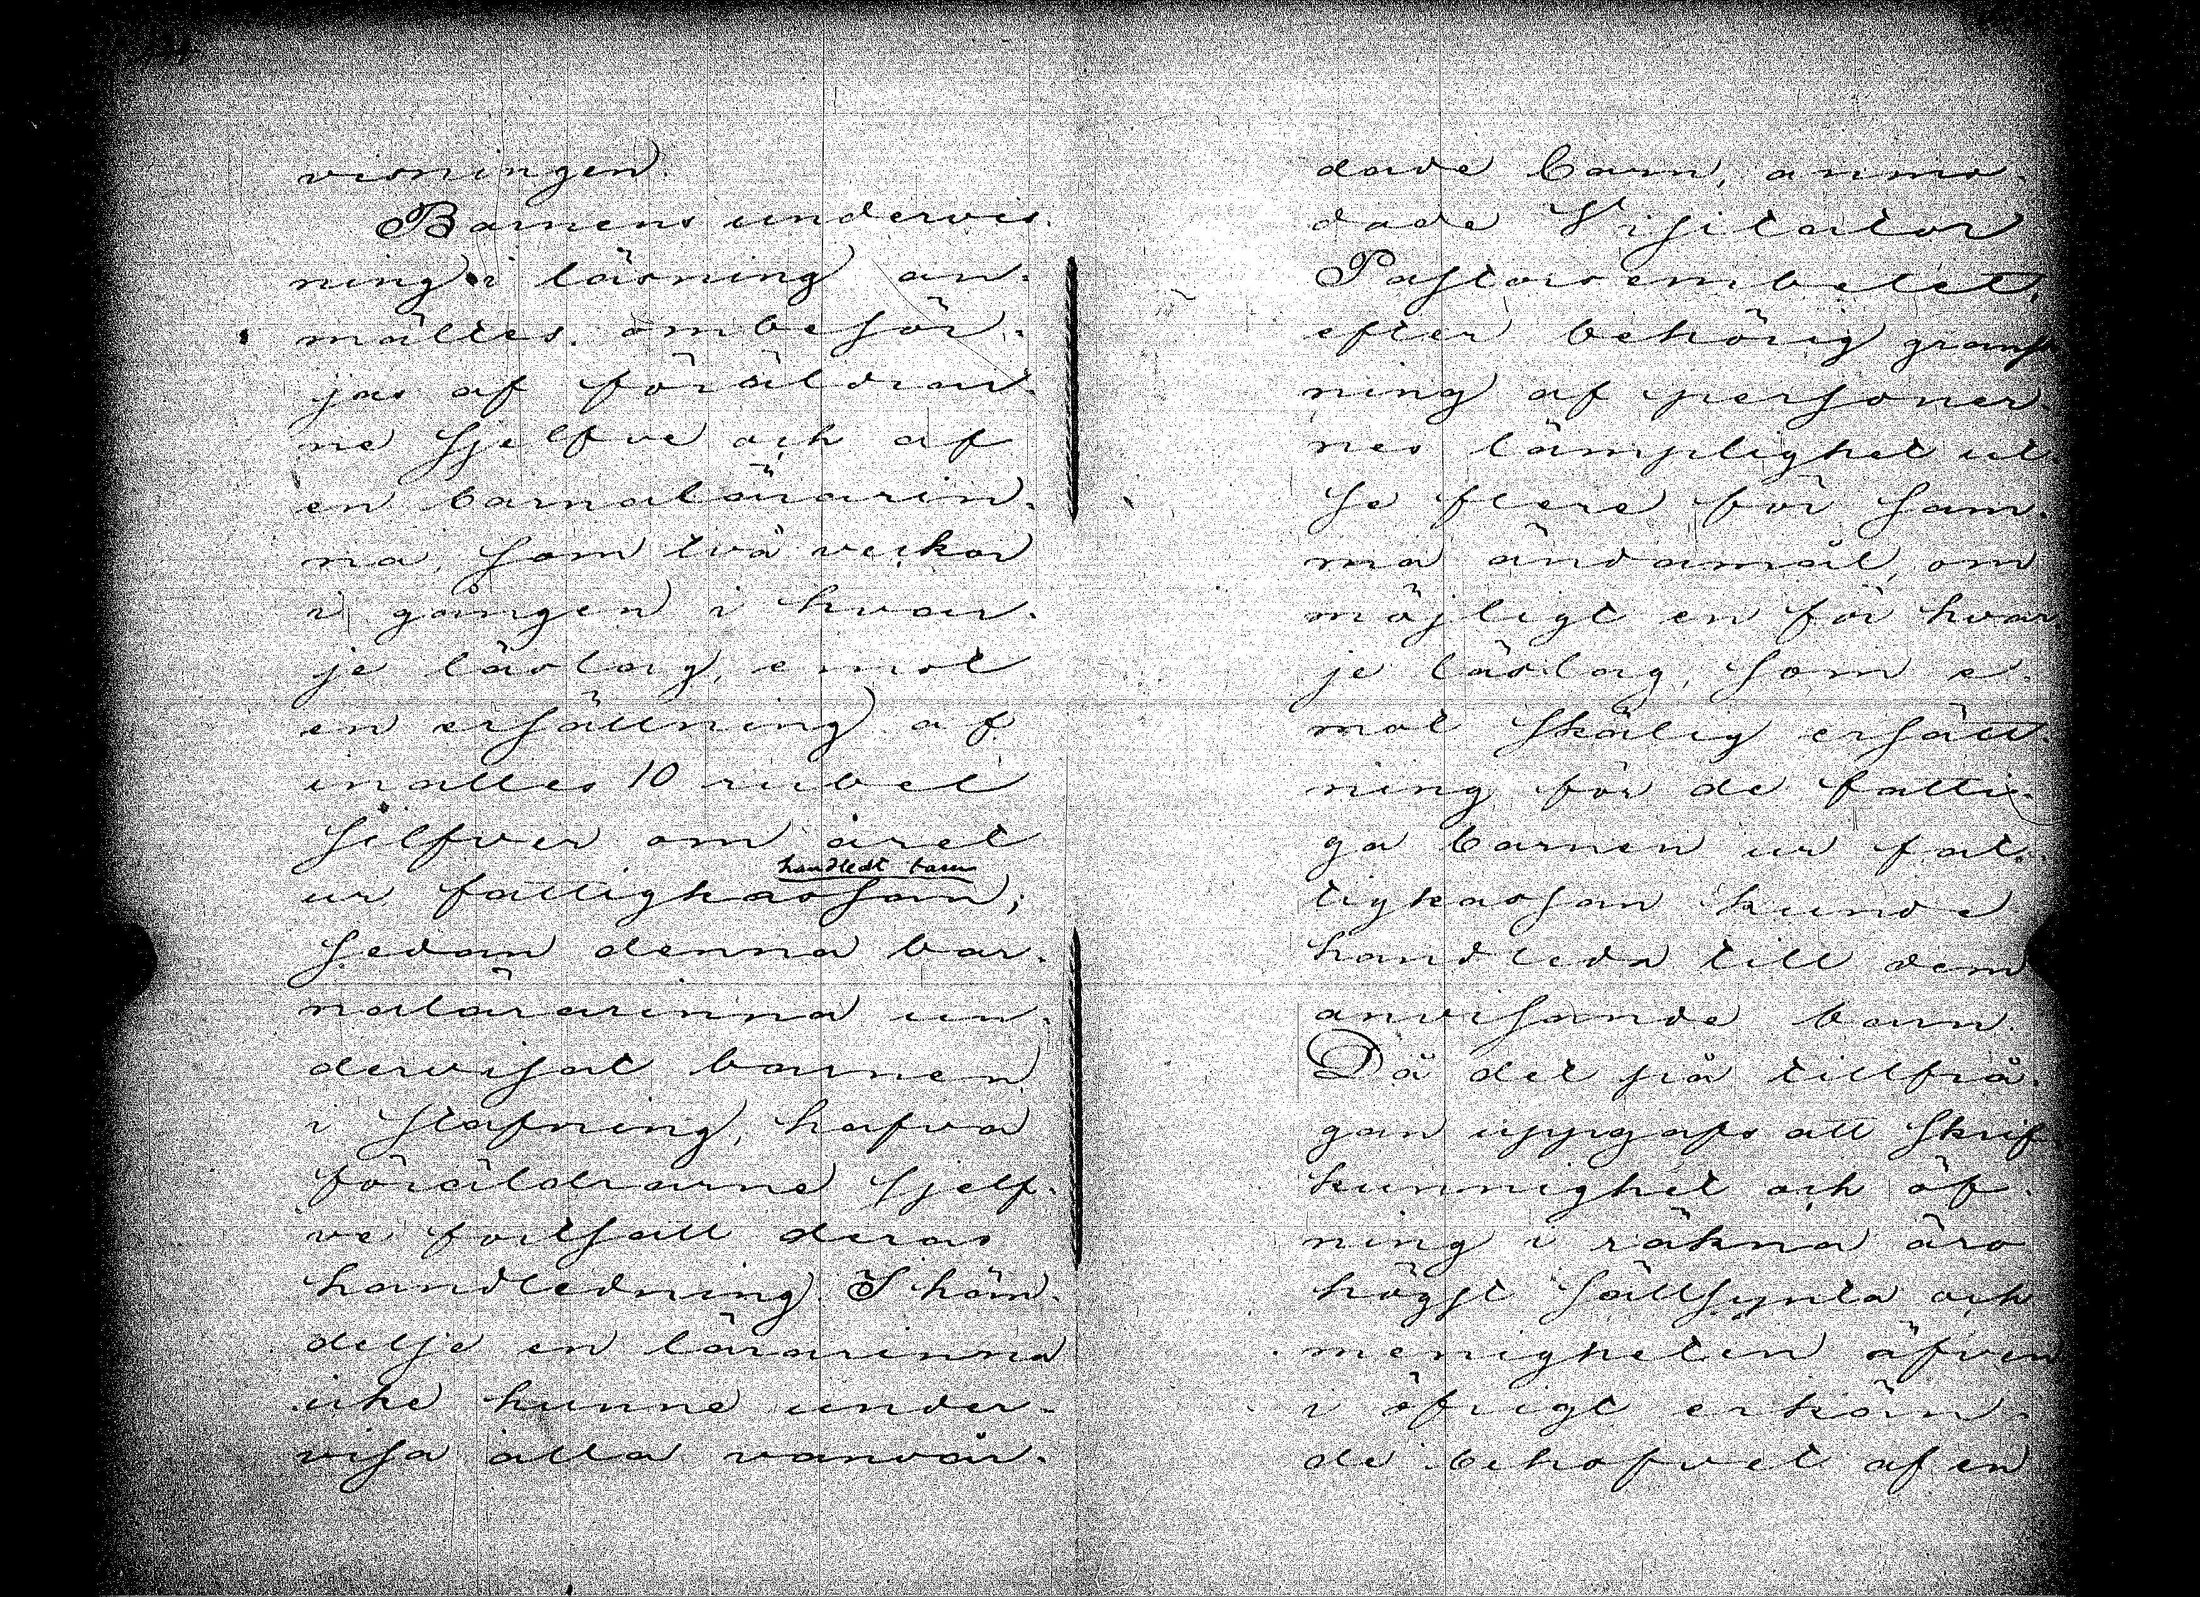 visningen.
Barnens undervis-
ning i läsning an-
mältes ombesör-
jas af föräldrar-
ne sjelfve och af
en barnalärarin-
na, som två veckor
i gången i hvar-
je läslag, emot
en ersättning af
inalles 10 rubel
silfver om året
handledt barn
ur fattigkassan;
sedan denna bar-
nalärarinna un-
dervisat barnen
i stafning, hafva
föräldrarne sjelf-
ve fortsatt deras
handledning. I hän-
delse en lärarinna
icke hunne under-
visa alla vanvår-
dade barn, anmo-
dade Visitator
Pastorsembetet,
efter behörig gransk-
ning af personer-
nes lämplighet ut-
se flere för sam-
ma ändamål, om
möjligt en för hvar-
je läslag, som e-
mot skälig ersätt-
ning för de fatti-
ga barnen ur fat-
tigkassan kunde
handleda till dem
anvisande barn.
Då det på tillfrå-
gan uppgafs att skrif-
kunnighet och öf-
ning i räkna äro
högst sällsynta och
menigheten äfven
i öfrigt erkän-
de behofvet af en